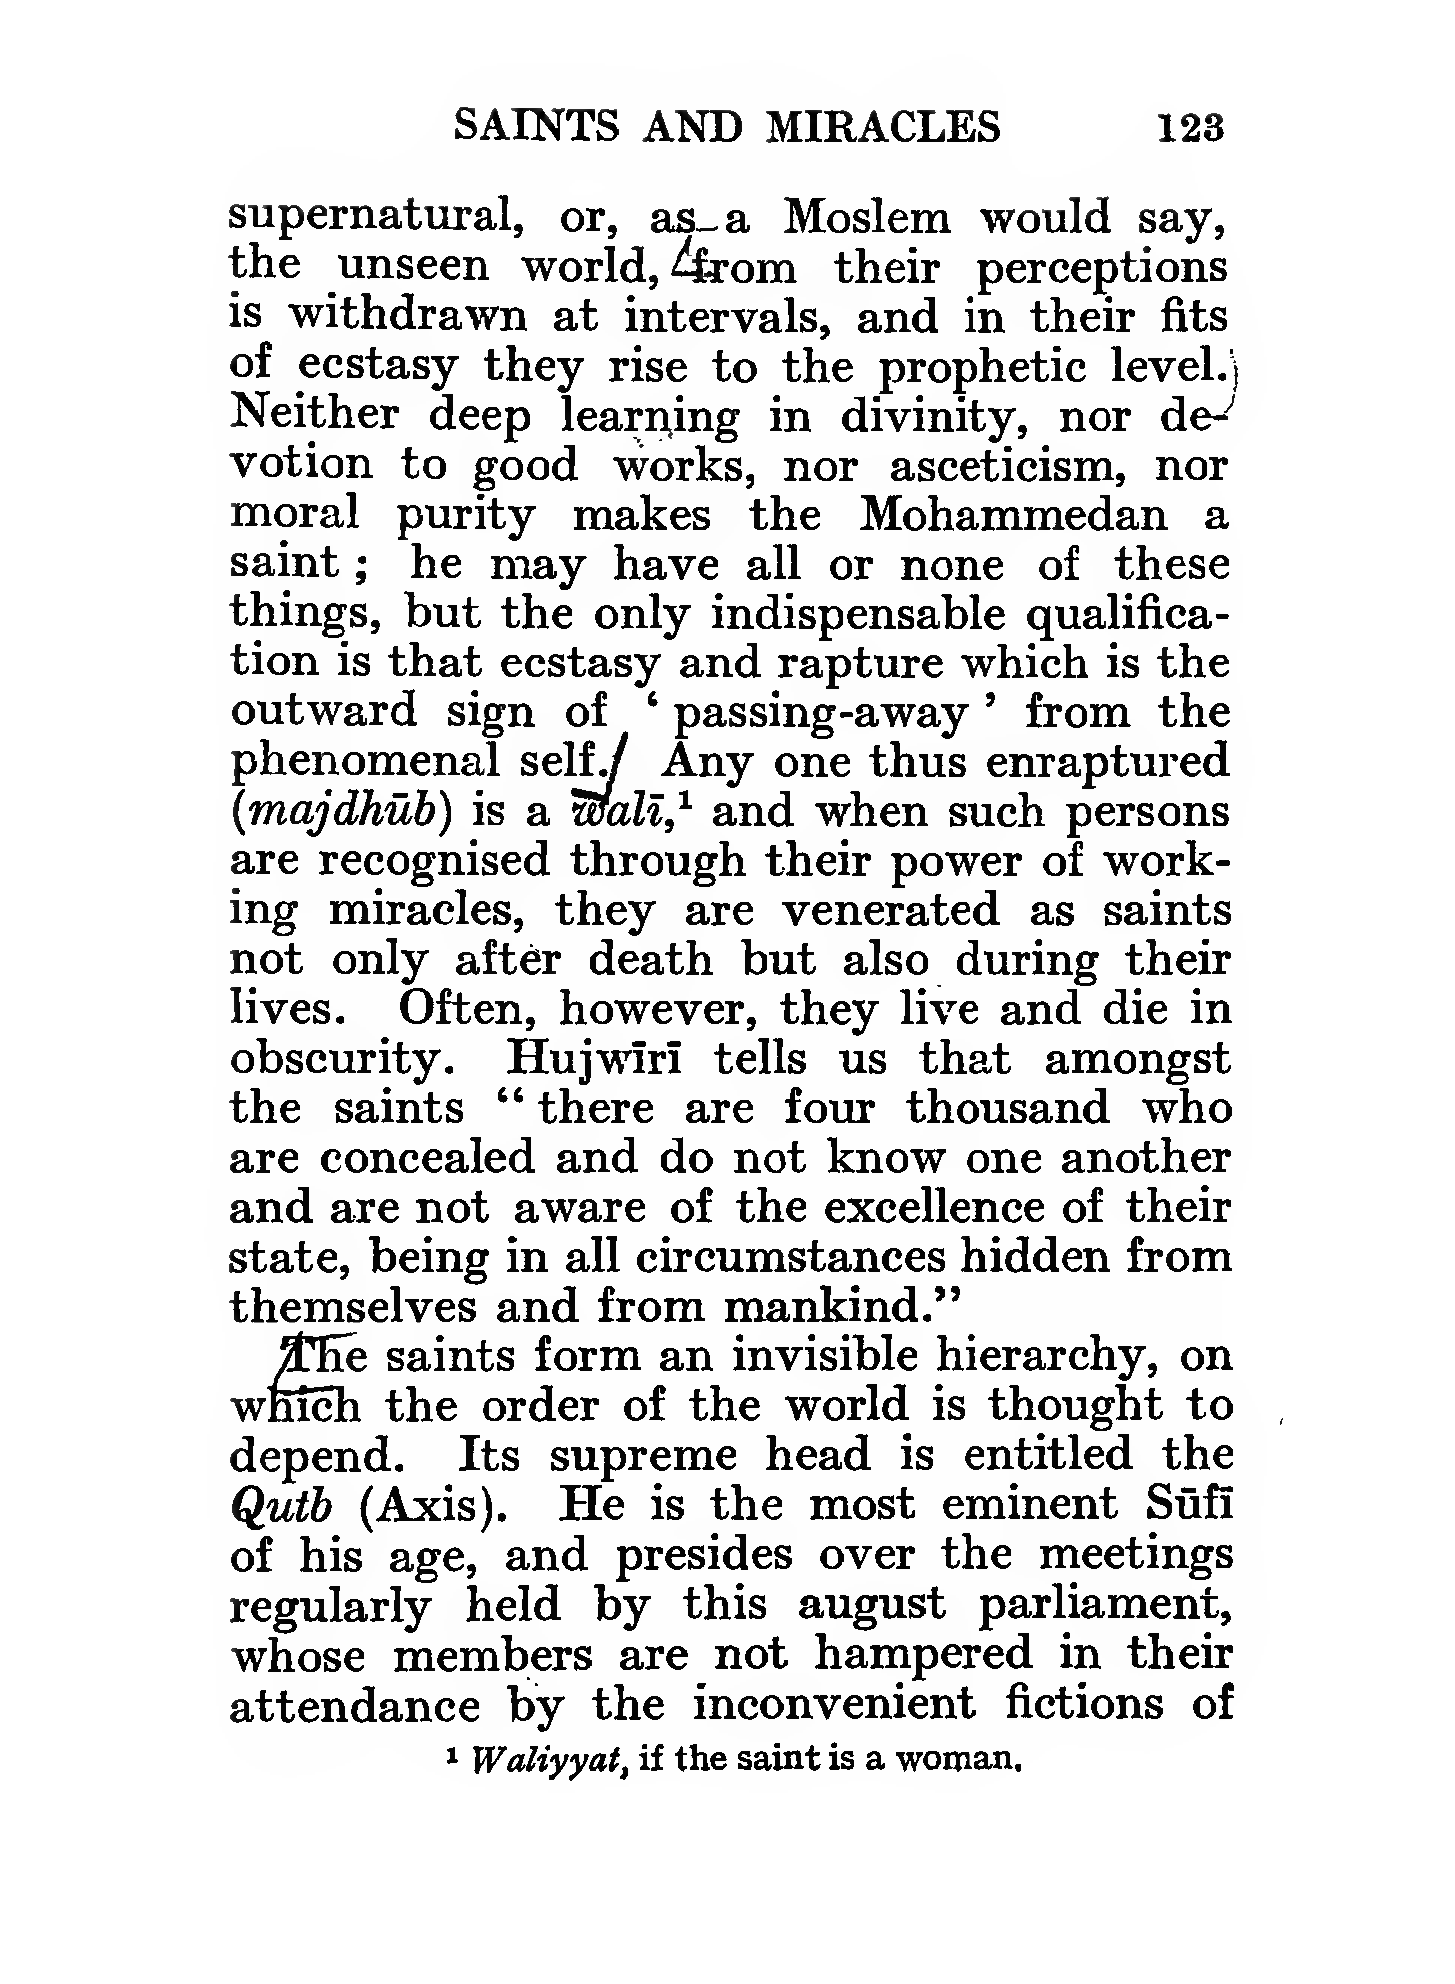 SAINTS AND MIRACLES 123
supernatural, or, as a Moslem would say,
the unseen world, from their perceptions
is withdrawn at intervals, and in their fits
of ecstasy they rise to the prophetic level.
Neither deep learning in divinity, nor de-
votion to good works, nor asceticism, nor
moral purity makes the Mohammedan a
saint ; he may have all or none of these
things, but the only indispensable qualifica-
tion is that ecstasy and rapture which is the
outward sign of ‘ passing-away ’ from the
phenomenal self. Any one thus enraptured
(majdhūb) is a walī,¹ and when such persons
are recognised through their power of work-
ing miracles, they are venerated as saints
not only after death but also during their
lives. Often, however, they live and die in
obscurity. Hujwīrī tells us that amongst
the saints “ there are four thousand who
are concealed and do not know one another
and are not aware of the excellence of their
state, being in all circumstances hidden from
themselves and from mankind.”
The saints form an invisible hierarchy, on
which the order of the world is thought to
depend. Its supreme head is entitled the
Qutb (Axis). He is the most eminent Sūfī
of his age, and presides over the meetings
regularly held by this august parliament,
whose members are not hampered in their
attendance by the inconvenient fictions of
¹ Waliyyat, if the saint is a woman.